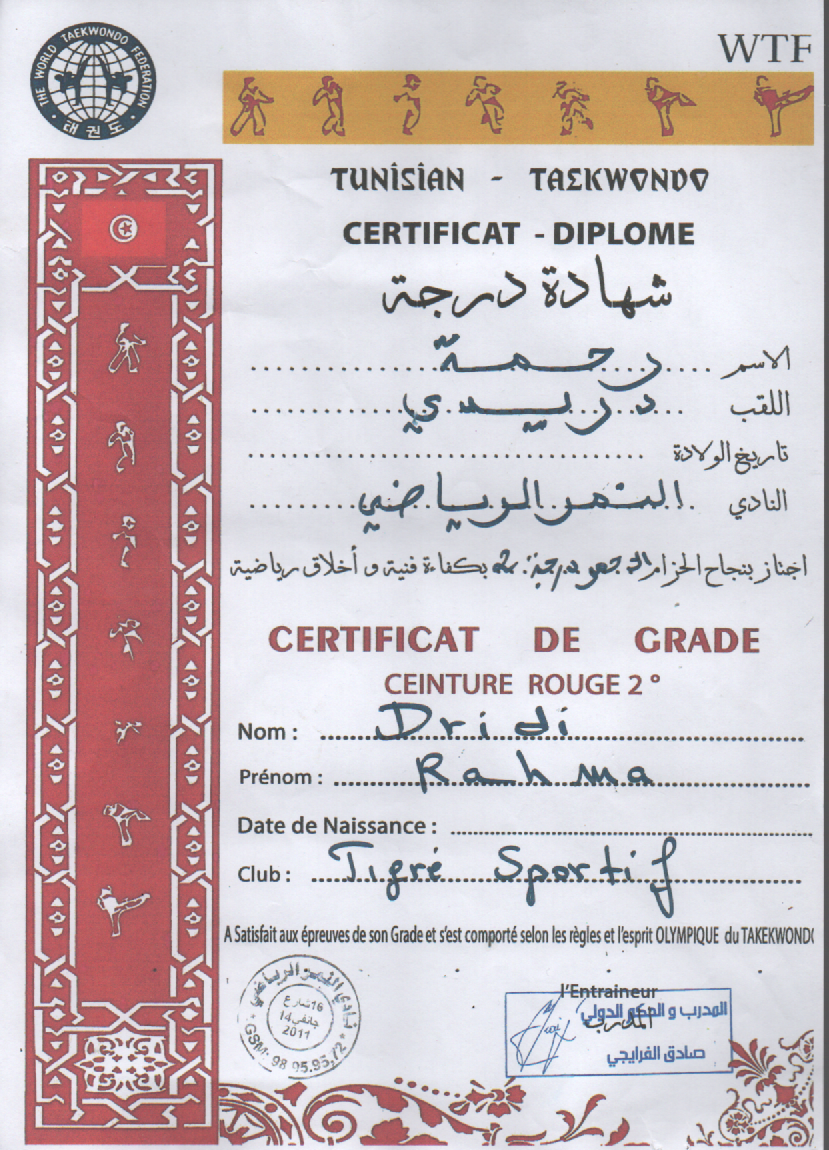 THE WORLD TAEKWONDO FEDERATION
태권도
WTF
TUNiSiAN - TAEKWONDO
CERTIFICAT - DIPLOME
شهادة درجة
الاسم .... رحمة ....
اللقب ... دريدي ...
تاريخ الولادة ....
النادي .. النمر الرياضي ....
اجتاز بنجاح الحزام بكفاءة فنية و أخلاق رياضية
CERTIFICAT DE GRADE
CEINTURE ROUGE 2 °
Nom : Dridi
Prénom : Rahma
Date de Naissance :
Club : Tigre Sportif
A Satisfait aux épreuves de son Grade et s'est comporté selon les règles et l'esprit OLYMPIQUE du TAKEKWONDO
نادي النمر الرياضي
16 شارع
14 جانفي
2011
GSM: 98.95.93.72
l'Entraineur
المدرب
المدرب و الحكم الدولي
صادق الفرايجي